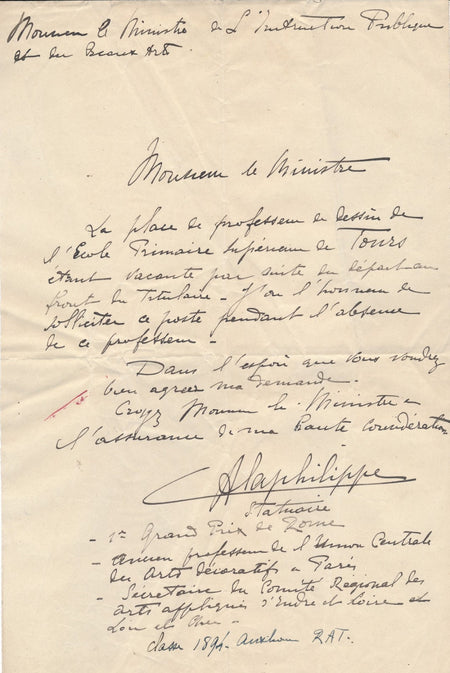 Monsieur le Ministre de L'Instruction Publique
et des Beaux Arts.
Monsieur le Ministre
La place de professeur de dessin de
l'École Primaire Supérieure de Tours
étant vacante par suite du départ au
front du Titulaire - J'ai l'honneur de
solliciter ce poste pendant l'absence
de ce professeur -
Dans l'espoir que vous voudrez
bien agréer ma demande.
Croyez Monsieur le Ministre a
l'assurance de ma haute considération
C Alaphilippe
Statuaire
- 1er Grand Prix de Rome
- Ancien professeur de l'Union Centrale
des Arts décoratifs a Paris
- Sécretaire du Comité Régional des
Arts appliqués d'Indre et Loire et
Loir et Cher -
classe 1894 - Auxiliaire RAT.